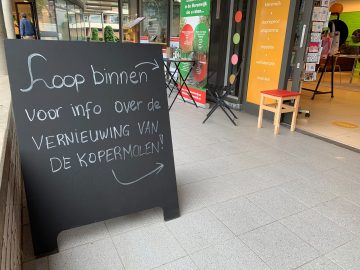 Loop binnen
voor info over de
VERNIEUWING VAN
DE KOPERMOLEN!